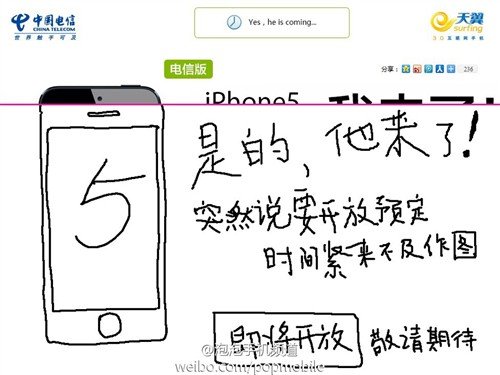 中国电信
CHINA TELECOM
世界触手可及
Yes , he is coming...
天翼
surfing
3G互联网手机
电信版
分享：
236
iPhone5
是的，他来了！
5
突然说要开放预定
时间紧来不及作图
即将开放
敬请期待
@泡泡手机频道
weibo.com/popmobile